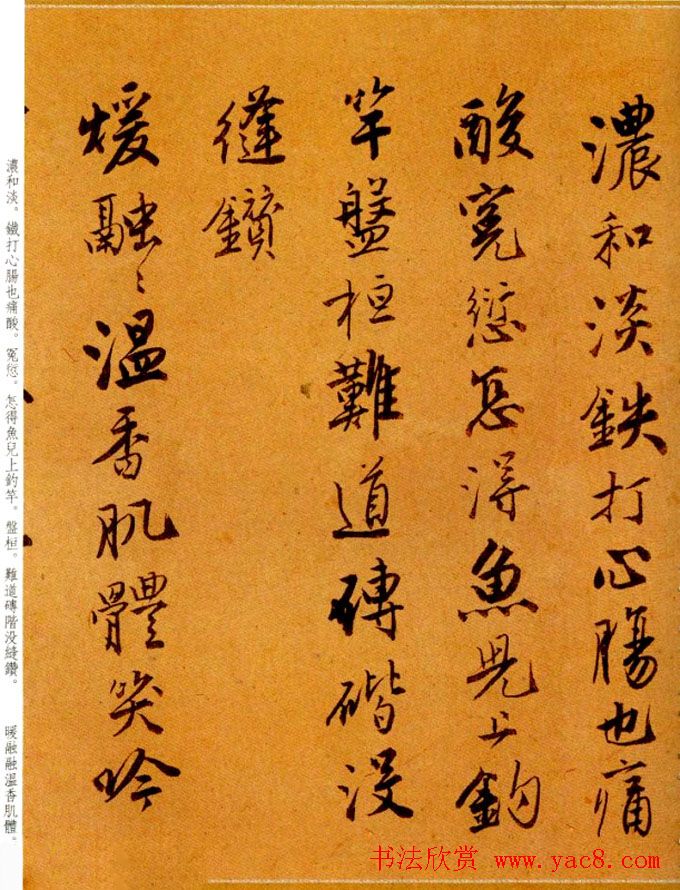 濃和淡鉄打心腸也痛
酸寃愆怎得魚兒上釣
竿盤桓難道磚階没
縫鑽
煖融〻温香肌體笑吟
濃和淡。鐵打心腸也痛酸。冤愆。怎得魚兒上釣竿。盤桓。難道磚階没縫鑽。　暖融融温香肌體。
书法欣赏 www.yac8.com